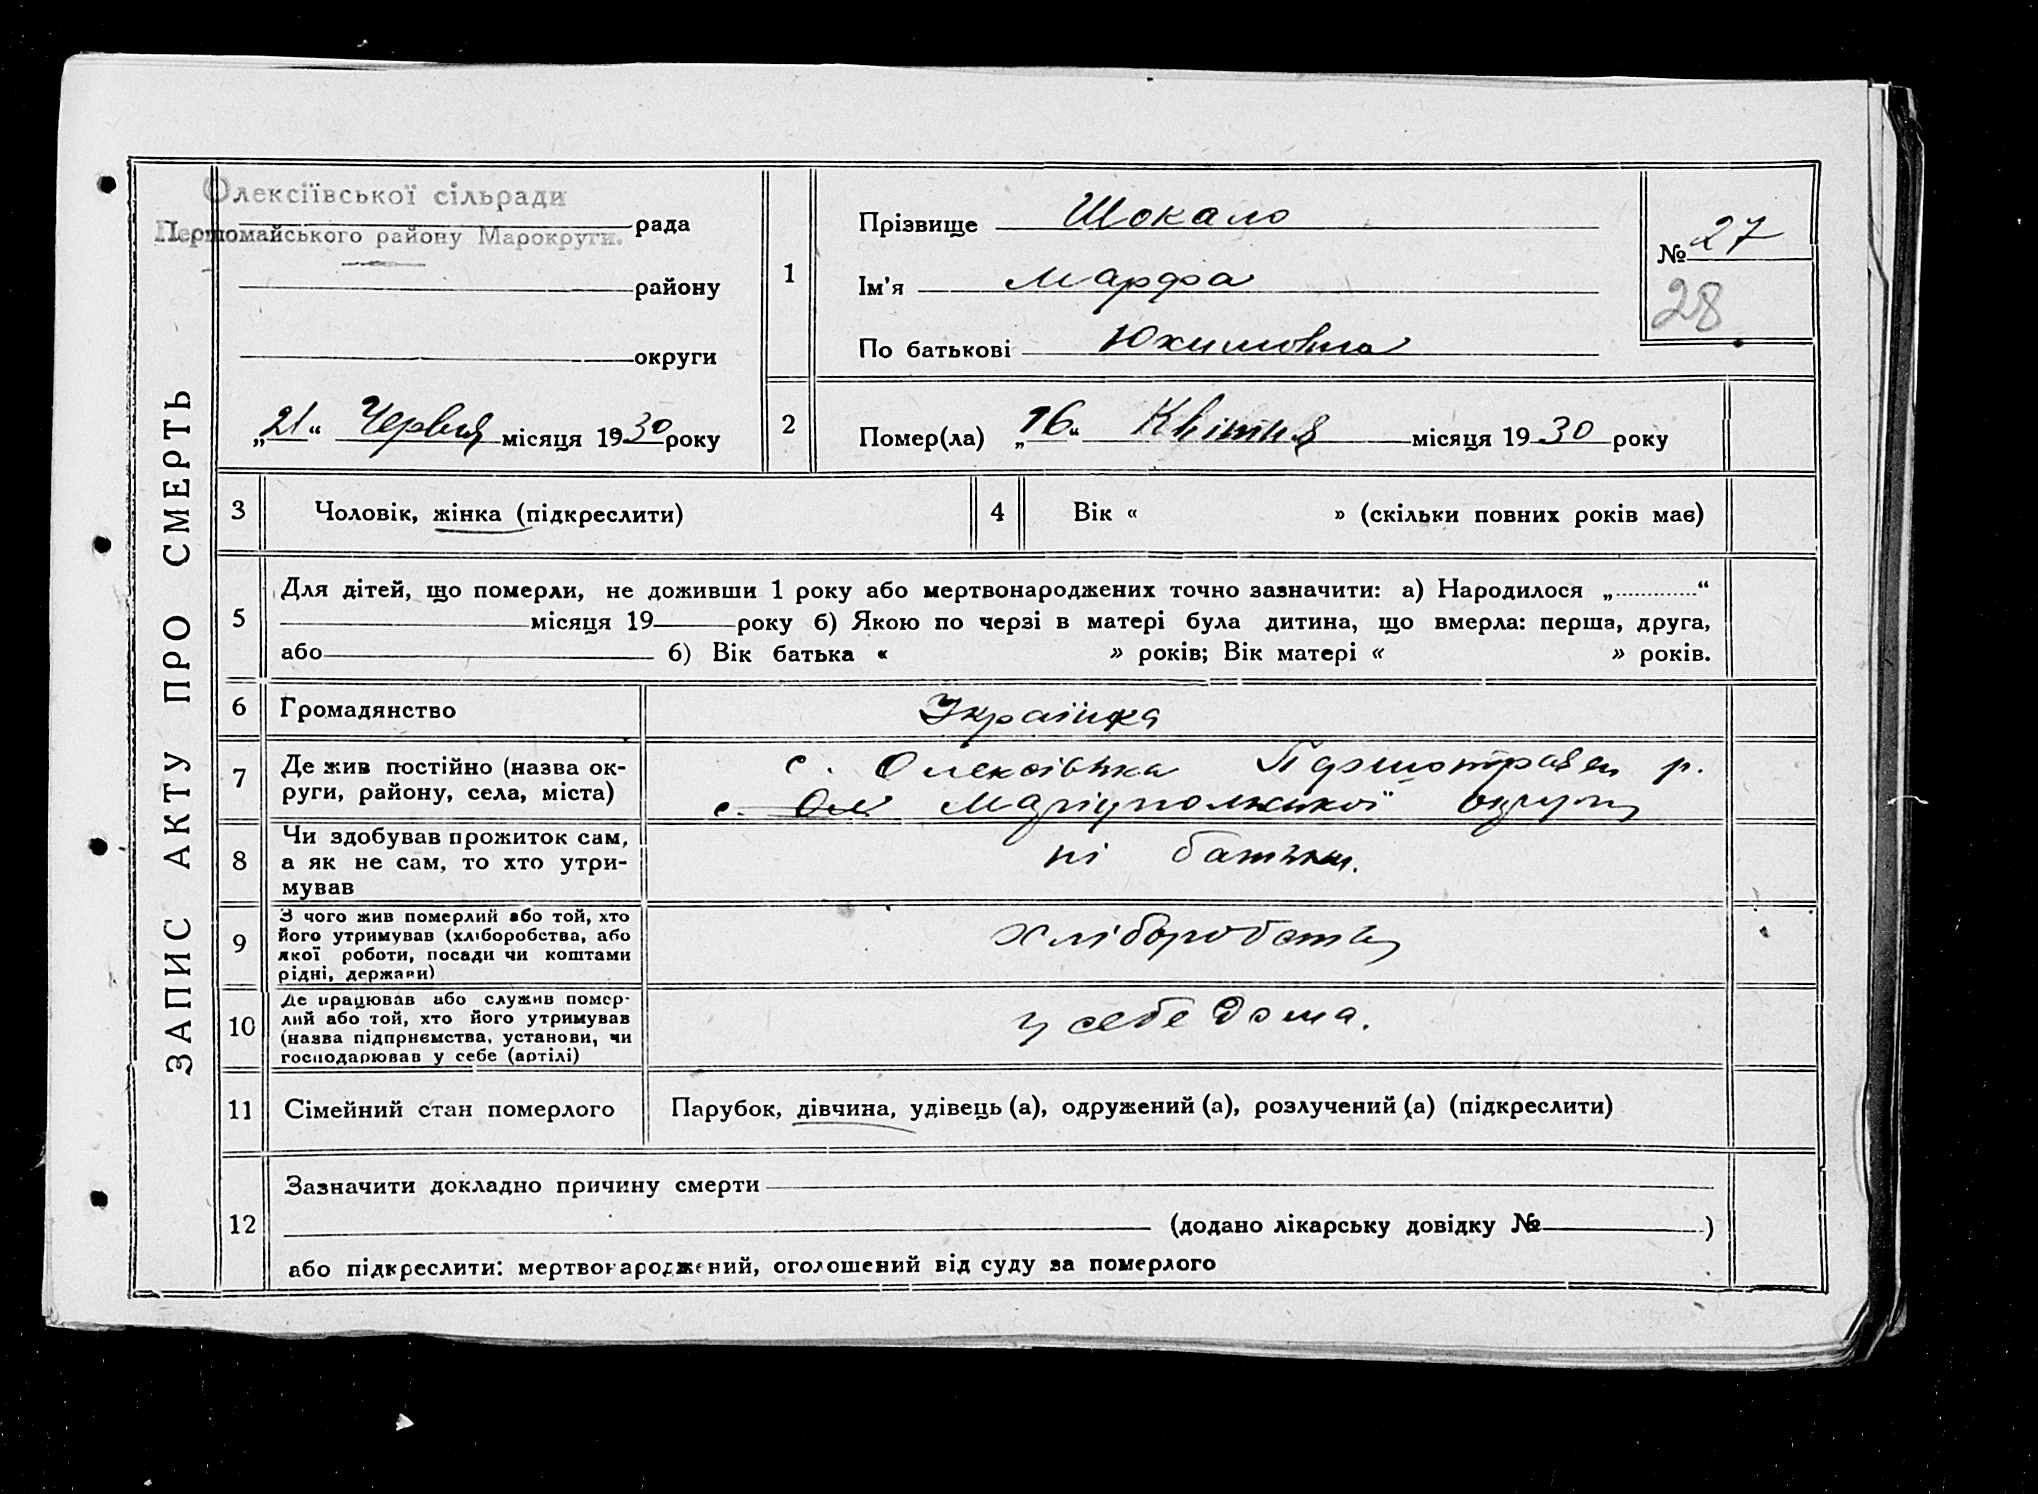 ЗАПИС АКТУ ПРО СМЕРТЬ
Олексіївської сільради
рада
Першомайського району Марокруги.
району
округи
„21“ Червня місяця 1930 року
1
Прізвище Шокало
Ім'я Марфа
По батькові Юхимовна
№ 27
28
2
Помер(ла) „16“ Квітня місяця 1930 року
3 Чоловік, жінка (підкреслити)
4 Вік « » (скільки повних років має)
5
Для дітей, що померли, не доживши 1 року або мертвонароджених точно зазначити: а) Народилося „ “
місяця 19 року б) Якою по черзі в матері була дитина, що вмерла: перша, друга,
або б) Вік батька « » років; Вік матері « » років.
6 Громадянство Українка
7
Де жив постійно (назва ок-
руги, району, села, міста)
с. Олексіївка р.
с. Ол Маріупольської округи
8
Чи здобував прожиток сам,
а як не сам, то хто утри-
мував
ні батьки.
9
З чого жив померлий або той, хто
його утримував (хліборобства, або
якої роботи, посади чи коштами
рідні, держави)
хліборобства
10
Де працював або служив помер-
лий або той, хто його утримував
(назва підприємства, установи, чи
господарював у себе (артілі)
у себе дома.
11 Сімейний стан померлого Парубок, дівчина, удівець (а), одружений (а), розлучений (а) (підкреслити)
12
Зазначити докладно причину смерти
(додано лікарську довідку № )
або підкреслити: мертвонароджений, оголошений від суду за померлого